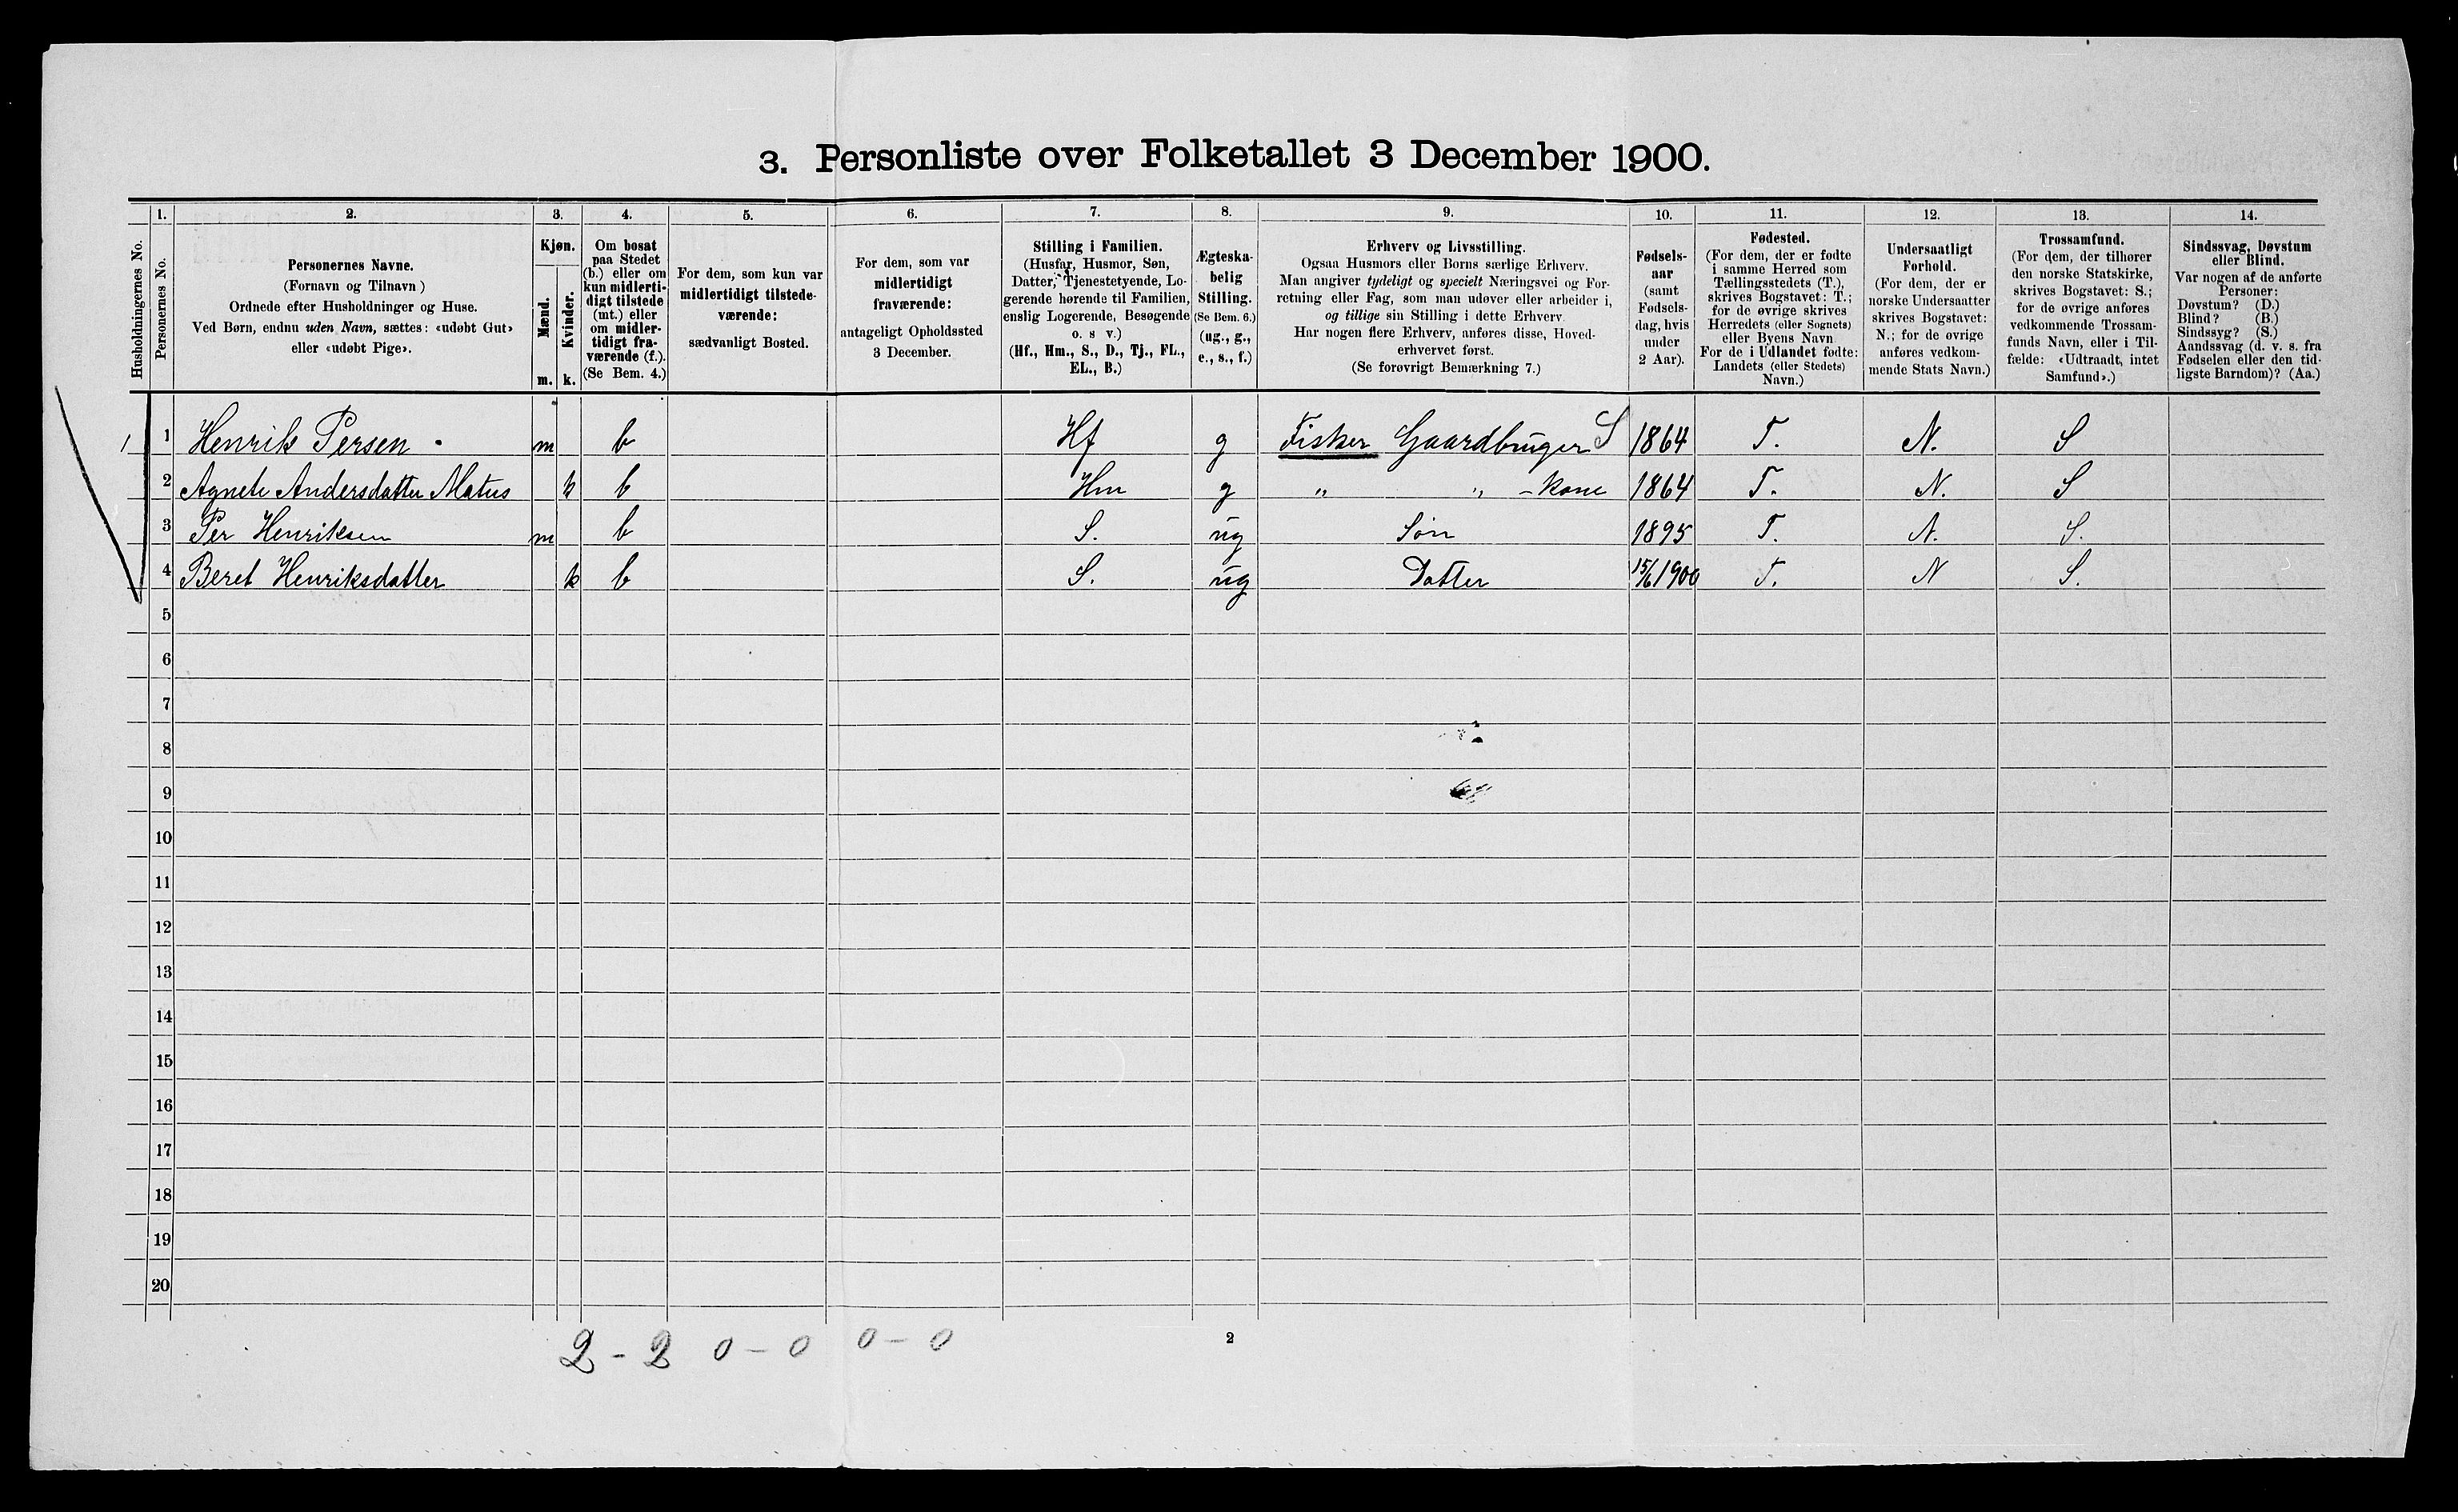 3. Personliste over Folketallet 3 December 1900.
1. 2. 3. 4. 5. 6. 7. 8. 9. 10. 11. 12. 13. 14.
Husholdningernes No.
Personernes No.
Personernes Navne.
(Fornavn og Tilnavn )
Ordnede efter Husholdninger og Huse.
Ved Børn, endnu uden Navn, sættes: «udøbt Gut»
eller «udøbt Pige».
Kjøn.
Mænd.
Kvinder.
m. k.
Om bosat
paa Stedet
(b.) eller om
kun midlerti-
digt tilstede
(mt.) eller
om midler-
tidigt fra-
værende (f.).
(Se Bem. 4.)
For dem, som kun var
midlertidigt tilstede-
værende:
sædvanligt Bosted.
For dem, som var
midlertidigt
fraværende:
antageligt Opholdssted
3 December.
Stilling i Familien.
(Husfar, Husmor, Søn,
Datter, Tjenestetyende, Lo-
gerende hørende til Familien,
enslig Logerende, Besøgende
o. s v.)
(Hf., Hm., S., D., Tj., FL.,
EL., B.)
Ægteska-
belig
Stilling.
(Se Bem. 6.)
(ug., g.,
e., s., f.)
Erhverv og Livsstilling.
Ogsaa Husmors eller Børns særlige Erhverv.
Man angiver tydeligt og specielt Næringsvei og For-
retning eller Fag, som man udøver eller arbeider i,
og tillige sin Stilling i dette Erhverv.
Har nogen flere Erhverv, anføres disse, Hoved-
erhvervet først.
(Se forøvrigt Bemærkning 7.)
Fødsels-
aar
(samt
Fødsels-
dag, hvis
under
2 Aar).
Fødested.
(For dem, der er fødte
i samme Herred som
Tællingsstedets (T.),
skrives Bogstavet: T.;
for de øvrige skrives
Herredets (eller Sognets)
eller Byens Navn
For de i Udlandet fødte:
Landets (eller Stedets)
Navn.)
Undersaatligt
Forhold.
(For dem, der er
norske Undersaatter
skrives Bogstavet:
N.; for de øvrige
anføres vedkom-
mende Stats Navn.)
Trossamfund.
(For dem, der tilhører
den norske Statskirke,
skrives Bogstavet: S.;
for de øvrige anføres
vedkommende Trossam-
funds Navn, eller i Til-
fælde: «Udtraadt, intet
Samfund».)
Sindssvag, Døvstum
eller Blind.
Var nogen af de anførte
Personer:
Døvstum? (D.)
Blind? (B.)
Sindssyg? (S.)
Aandssvag (d. v. s. fra
Fødselen eller den tid-
ligste Barndom)? (Aa.)
1 1 Henrik Persen m b Hf g Fisker Gaardbruger S 1864 T. N. S
2 Agnete Andersdatter Matus k b Hm g " " -kone 1864 T. N. S
3 Per Henriksen m b S. ug Søn 1895 T. N. S.
4 Beret Henriksdatter k b S. ug Datter 15/6 1900 T. N S.
5
6
7
8
9
10
11
12
13
14
15
16
17
18
19
20
2 - 2 0 - 0 0 - 0
2